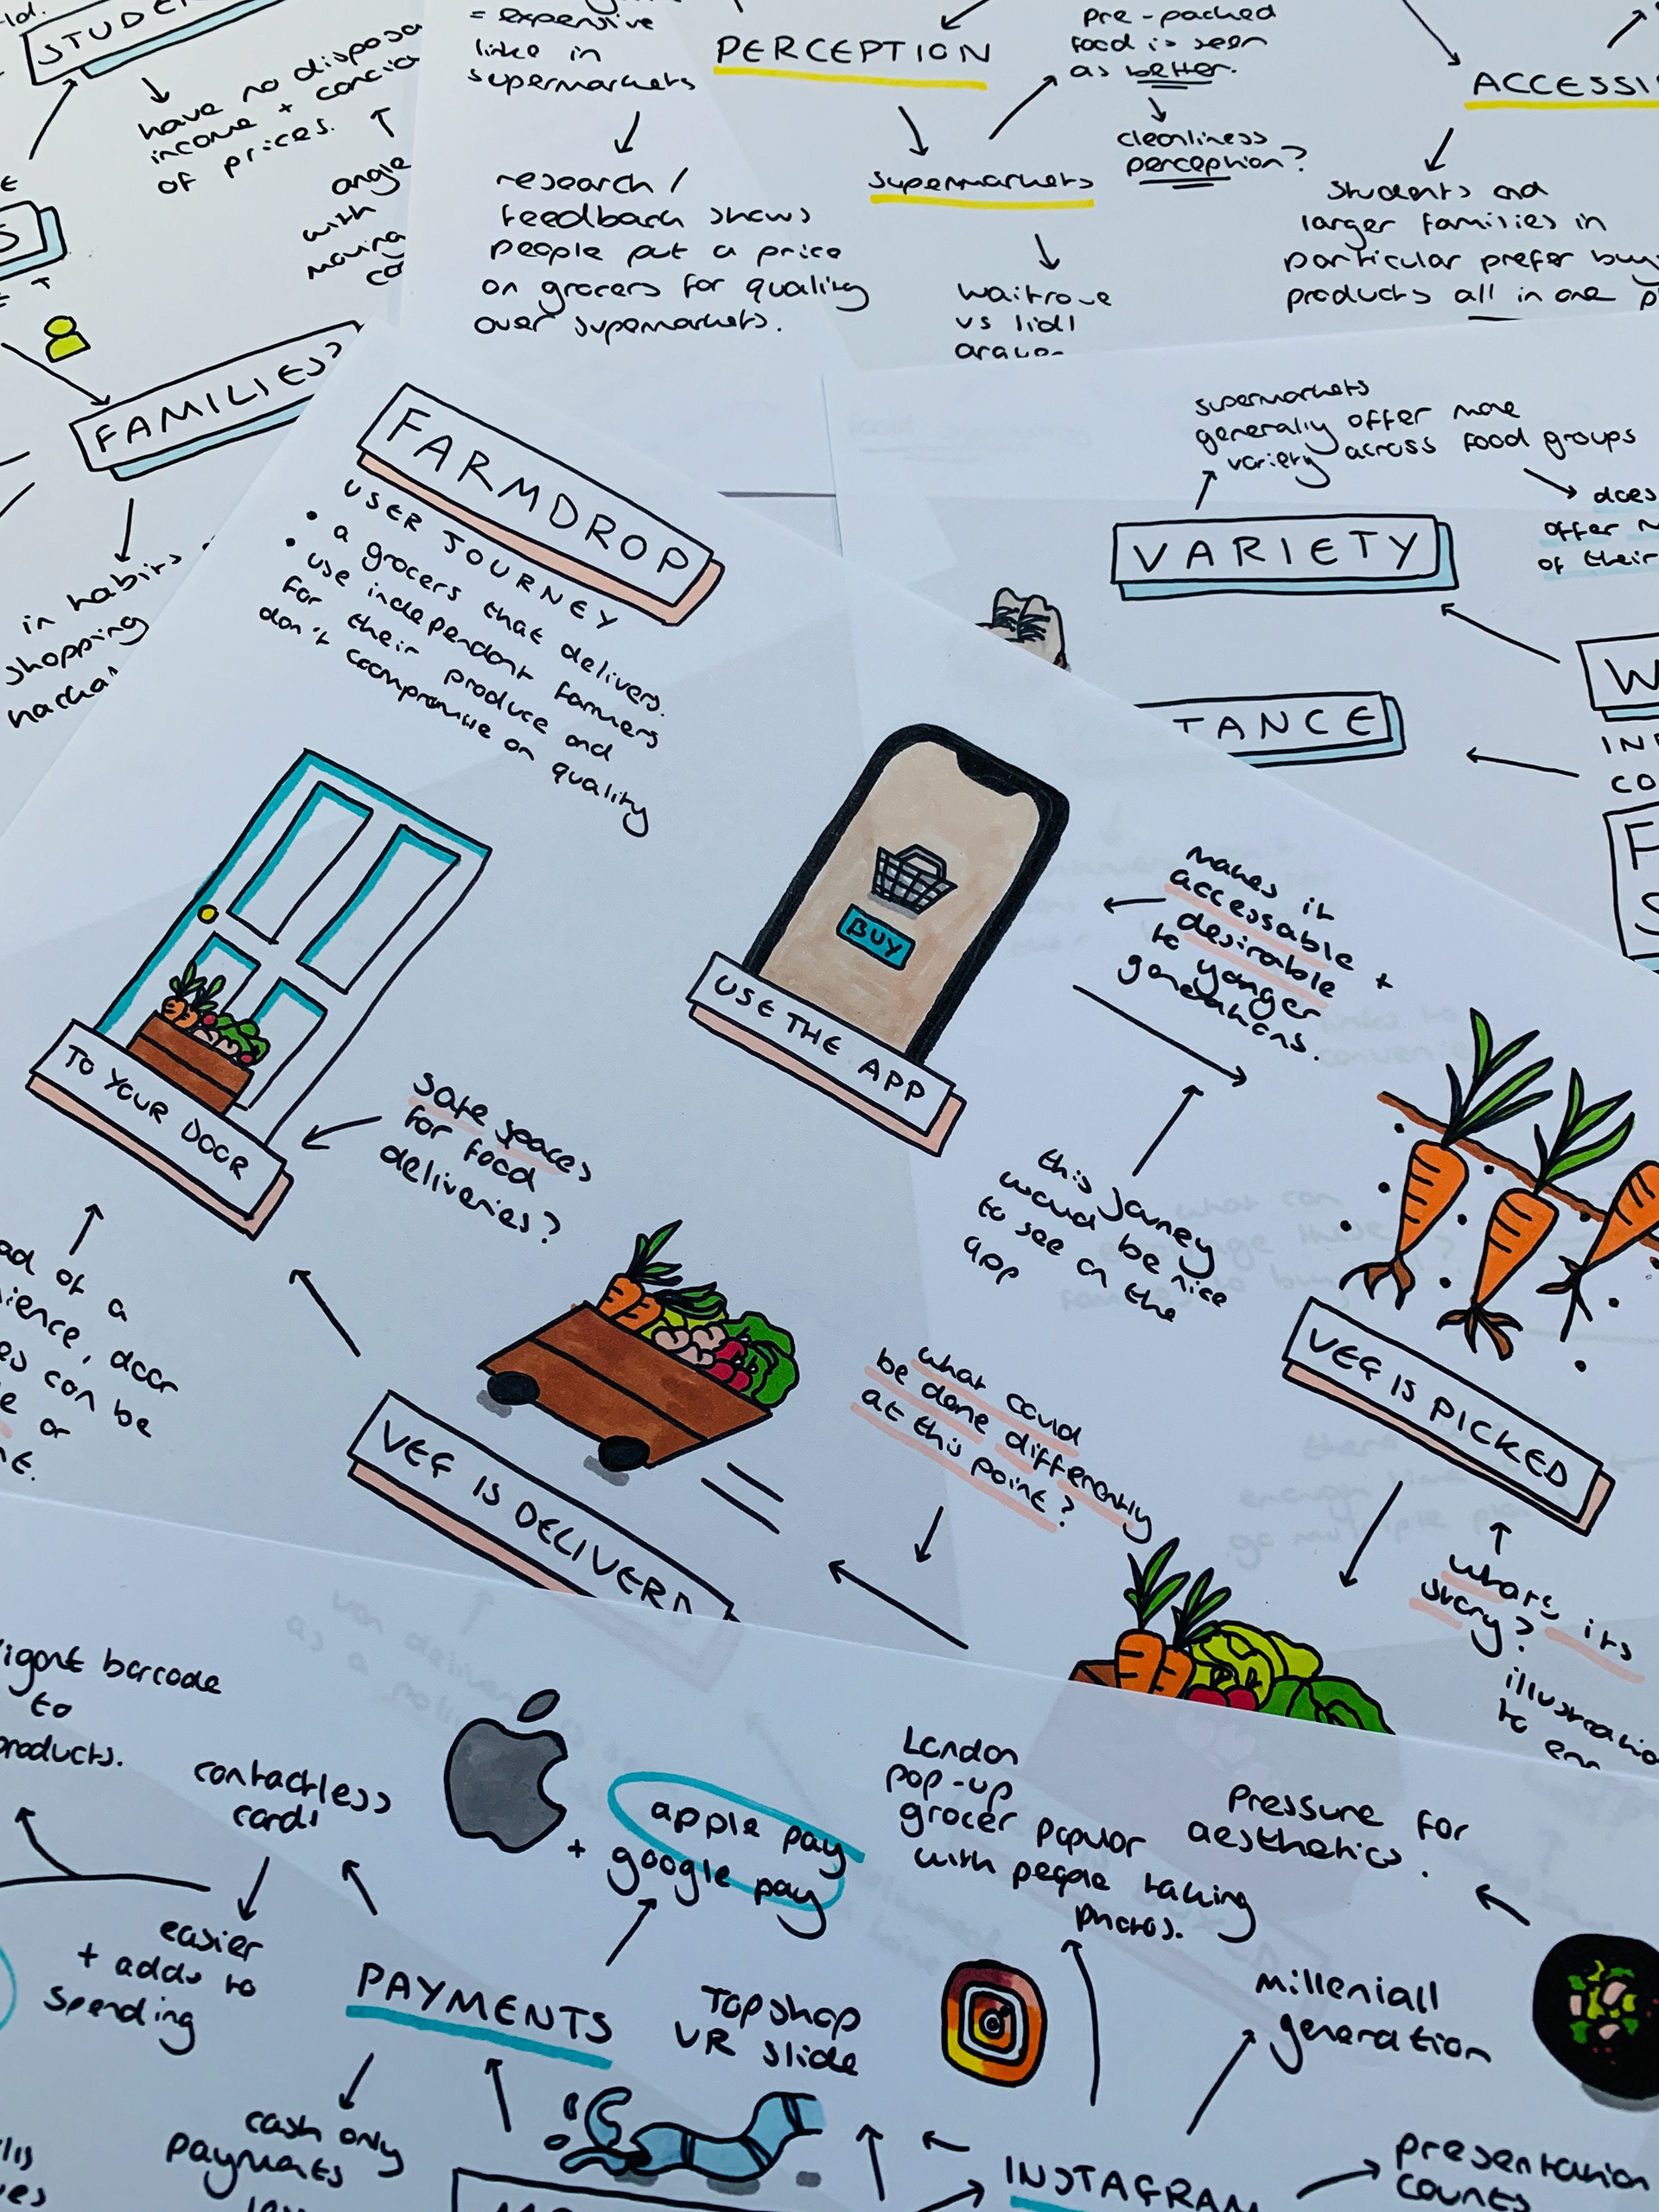 STUDE
have no disposa
income + concio
of prices.
angle
with
moving
co
= expensive
linke in
supermarkets
research /
feedback shows
people put a price
on grocers for quality
over supermarkets.
PERCEPTION
supermarkets
waitrose
vs lidl
pre-packed
food is seen
as better.
cleanliness
perception?
ACCESSI
students and
larger families in
particular prefer buy
products all in one p
FAMILIES?
in habits
shopping
supermarkets
generally offer more
variety across food groups
does
offer
of their
VARIETY
TANCE
W
IN
CO
F
S
FARMDROP
USER JOURNEY
• a grocers that delivers.
• use independent farmers
for their produce and
don't compromise on quality
BUY
USE THE APP
makes it
accessable +
desirable
to yonger
generations.
this joney
woud be nice
to see on the
app
VEG IS PICKED
whats its
story?
illustratio
to enn
what could
be done differently
at this point?
VEG IS DELIVERD
safe spaces
for food
deliveries?
TO YOUR DOOR
ad of a
ience, door
es can be
e or
nt.
igent barcode
to
products.
contactless
cards
easier
+ adds to
spending
apple pay
+ google pay
PAYMENTS
cash only
payments
Topshop
VR slide
London
pop-up
grocer popular
with people taking
photos.
Pressure for
aesthetics.
milleniall
generation
INSTAGRAM
presentation
counts